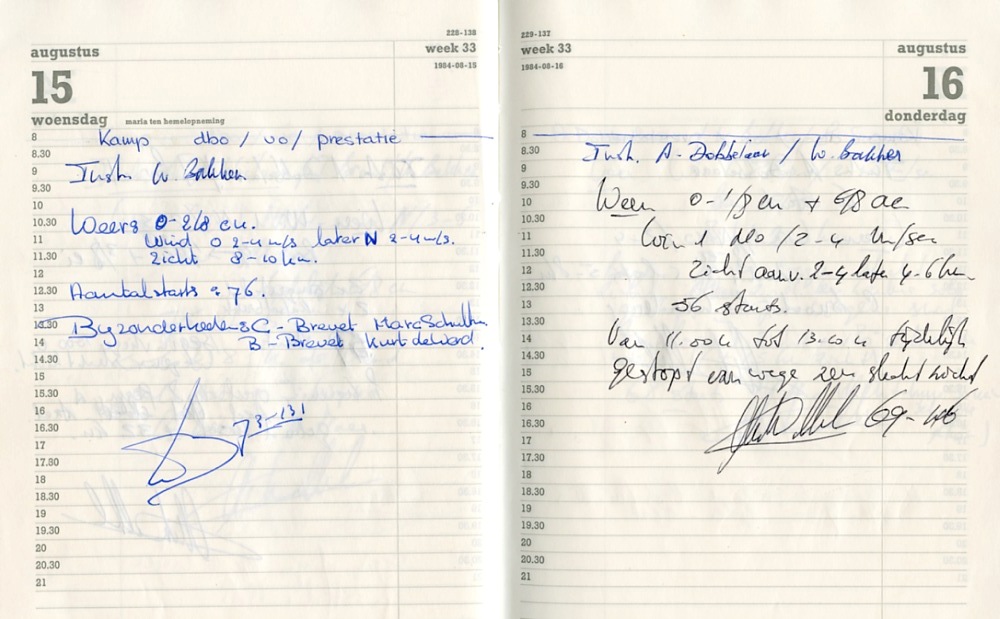 228-138
augustus
week 33
15
1984-08-15
woensdag
maria ten hemelopneming
8
Kamp dbo / vo / prestatie
8.30
9
Inst. W. Bakker
9.30
10
10.30
Weers 0-2/8 cu.
11
Wind 0 2-4 m/s later N 2-4 m/s.
11.30
Zicht 8-10 km.
12
12.30
Aantal starts : 76.
13
13.30
Byzonderheden: C - Brevet Marc
14
B - Brevet Kurt de Werd.
14.30
15
15.30
16
73-131
16.30
17
17.30
18
18.30
19
19.30
20
20.30
21
229-137
week 33
augustus
1984-08-16
16
donderdag
8
8.30
Inst. A. Dobbelaar / W. Bakker
9
9.30
10
Weer 0-1/8 cu + 6/8 ac
10.30
11
/ 2-4 m/sec
11.30
12
Zicht aanv. 2-4 later 4-6 km.
12.30
13
56 starts.
13.30
14
Van 11.00 u tot 13.00 u tijdelijk
14.30
15
gestopt van wege zeer slecht zicht
15.30
16
69-46
16.30
17
17.30
18
18.30
19
19.30
20
20.30
21